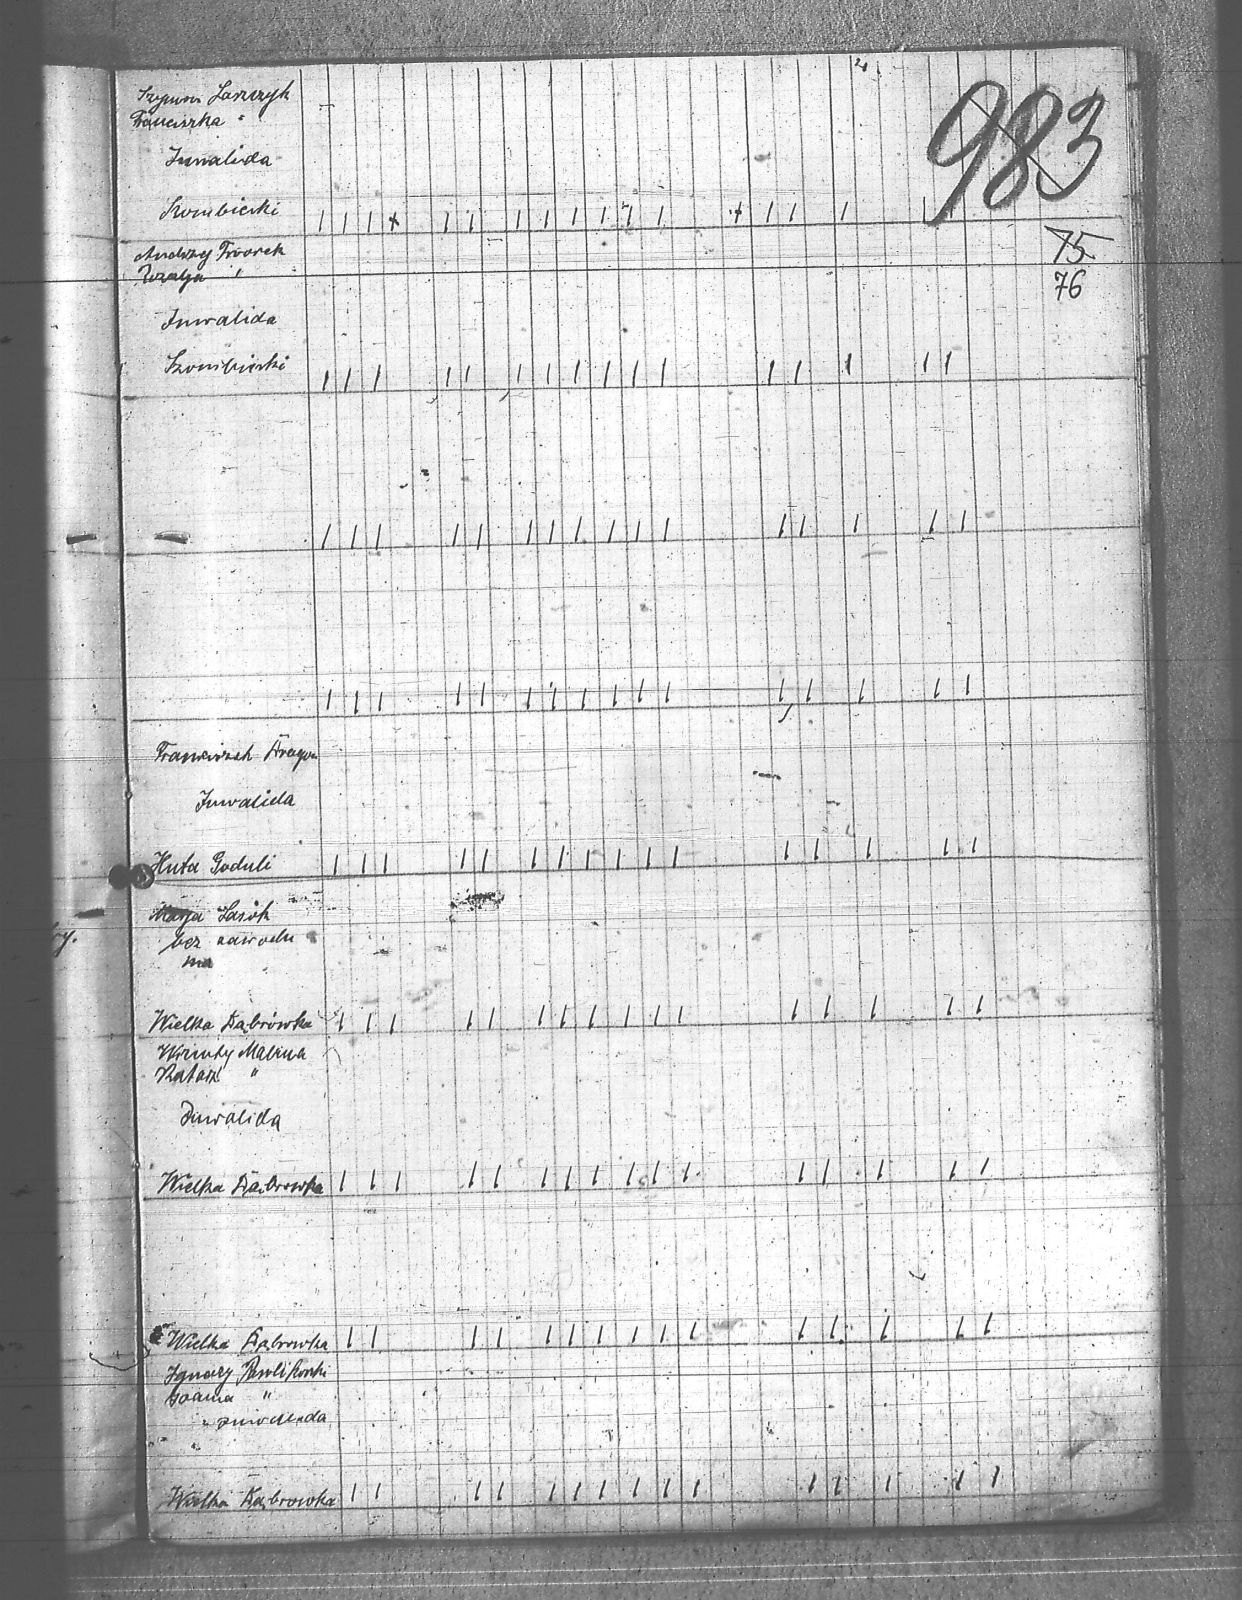 983
Szymon Laszczyk
Franciszka "
Inwalida
Szombierki
75
Andrzej Tworek
76
Inwalida
Szombierki
Franciszek Dragon
Inwalida
Huta Goduli
Marja Lasok
bez zawodu
Wielka Dąbrówka
Malina
Katarz. "
Inwalida
Wielka Dąbrowka
Wielka Dąbrowka
Ignacy Pawlikowski
Joanna "
Inwalida
Wielka Dąbrowka